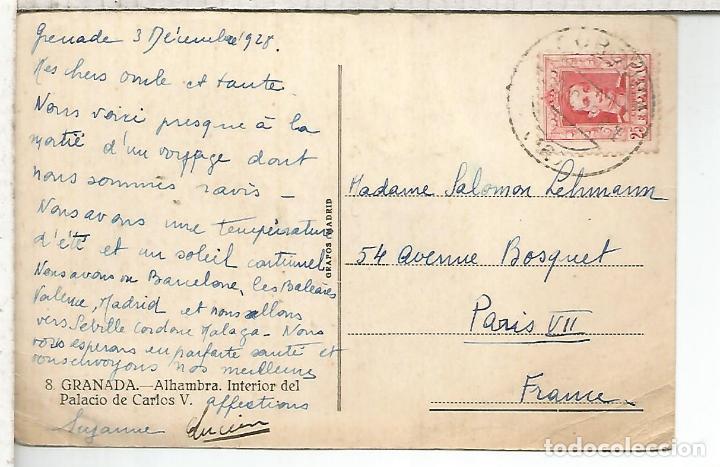 Grenade 3 Décembre 1928.
Mes chers oncle et tante
Nous voici presque à la
moitié d'un voyage dont
nous sommes ravis —
Nous avons une température
d'été et un soleil continuel
Nous avons vu Barcelone, les Baléares
Valence, Madrid et nous allons
vers Séville Cordoue Malaga - Nous
vous espérons en parfaite santé et
vous envoyons nos meilleures
affections
Suzanne Lucien
8. GRANADA.—Alhambra. Interior del
Palacio de Carlos V.
GRAFOS MADRID
Madame Salomon Lehmann
54 Avenue Bosquet
Paris VII
France.
todocoleccion